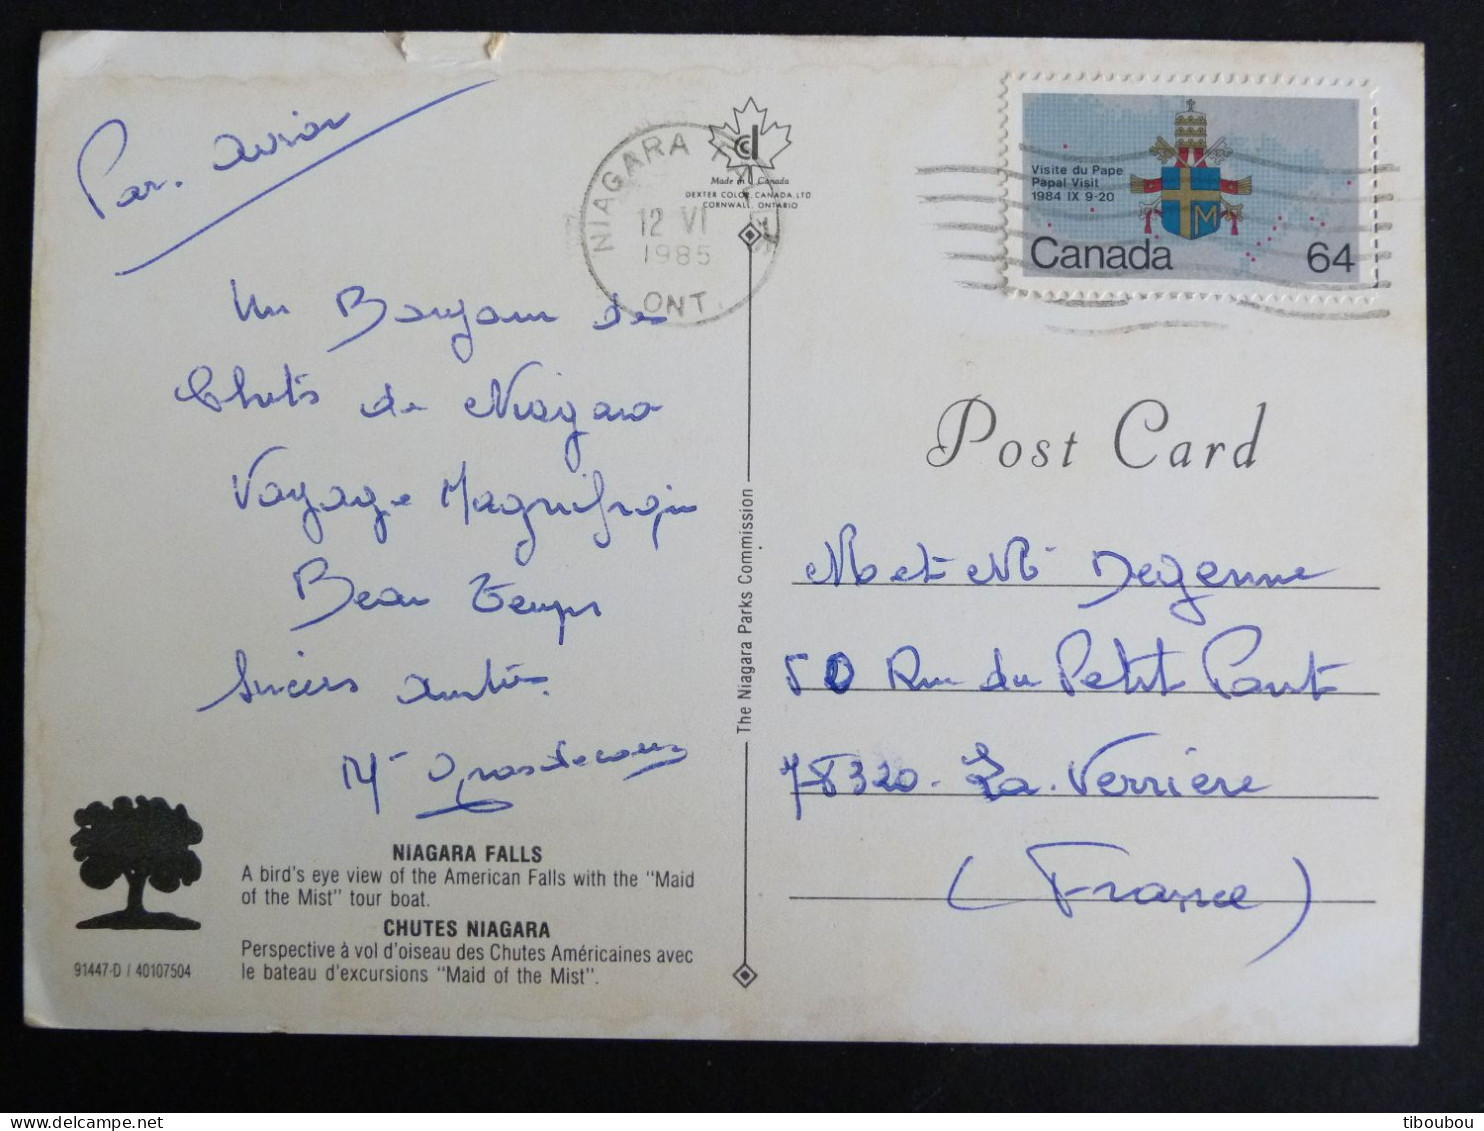 Par avion
NIAGARA FALLS
12 VI
1985
ONT.
cd
Made in Canada
DEXTER COLOR, CANADA, LTD
CORNWALL, ONTARIO
Visite du Pape
Papal Visit
1984 IX 9-20
Canada 64
Un Bonjour de
Chuts de Niagara
Voyage Magnifiqu
Beau temps
M
NIAGARA FALLS
A bird's eye view of the American Falls with the "Maid
of the Mist" tour boat.
CHUTES NIAGARA
Perspective à vol d'oiseau des Chutes Américaines avec
le bateau d'excursions "Maid of the Mist".
91447-D / 40107504
The Niagara Parks Commission
Post Card
M et Me Dezenne
50 Rue du Petit Pont
78320. La Verriere
(France)
tiboubou
(c) delcampe.net